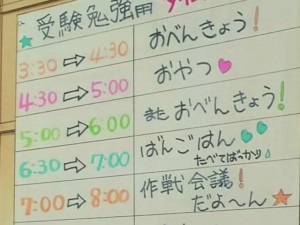 ★受験勉強
3:30⇨4:30 おべんきょう!
4:30⇨5:00 おやつ♥
5:00⇨6:00 また おべんきょう!
6:30⇨7:00 ばんごはん
たべてばっかり
7:00⇨8:00 作戦会議!
だよ〜ん★